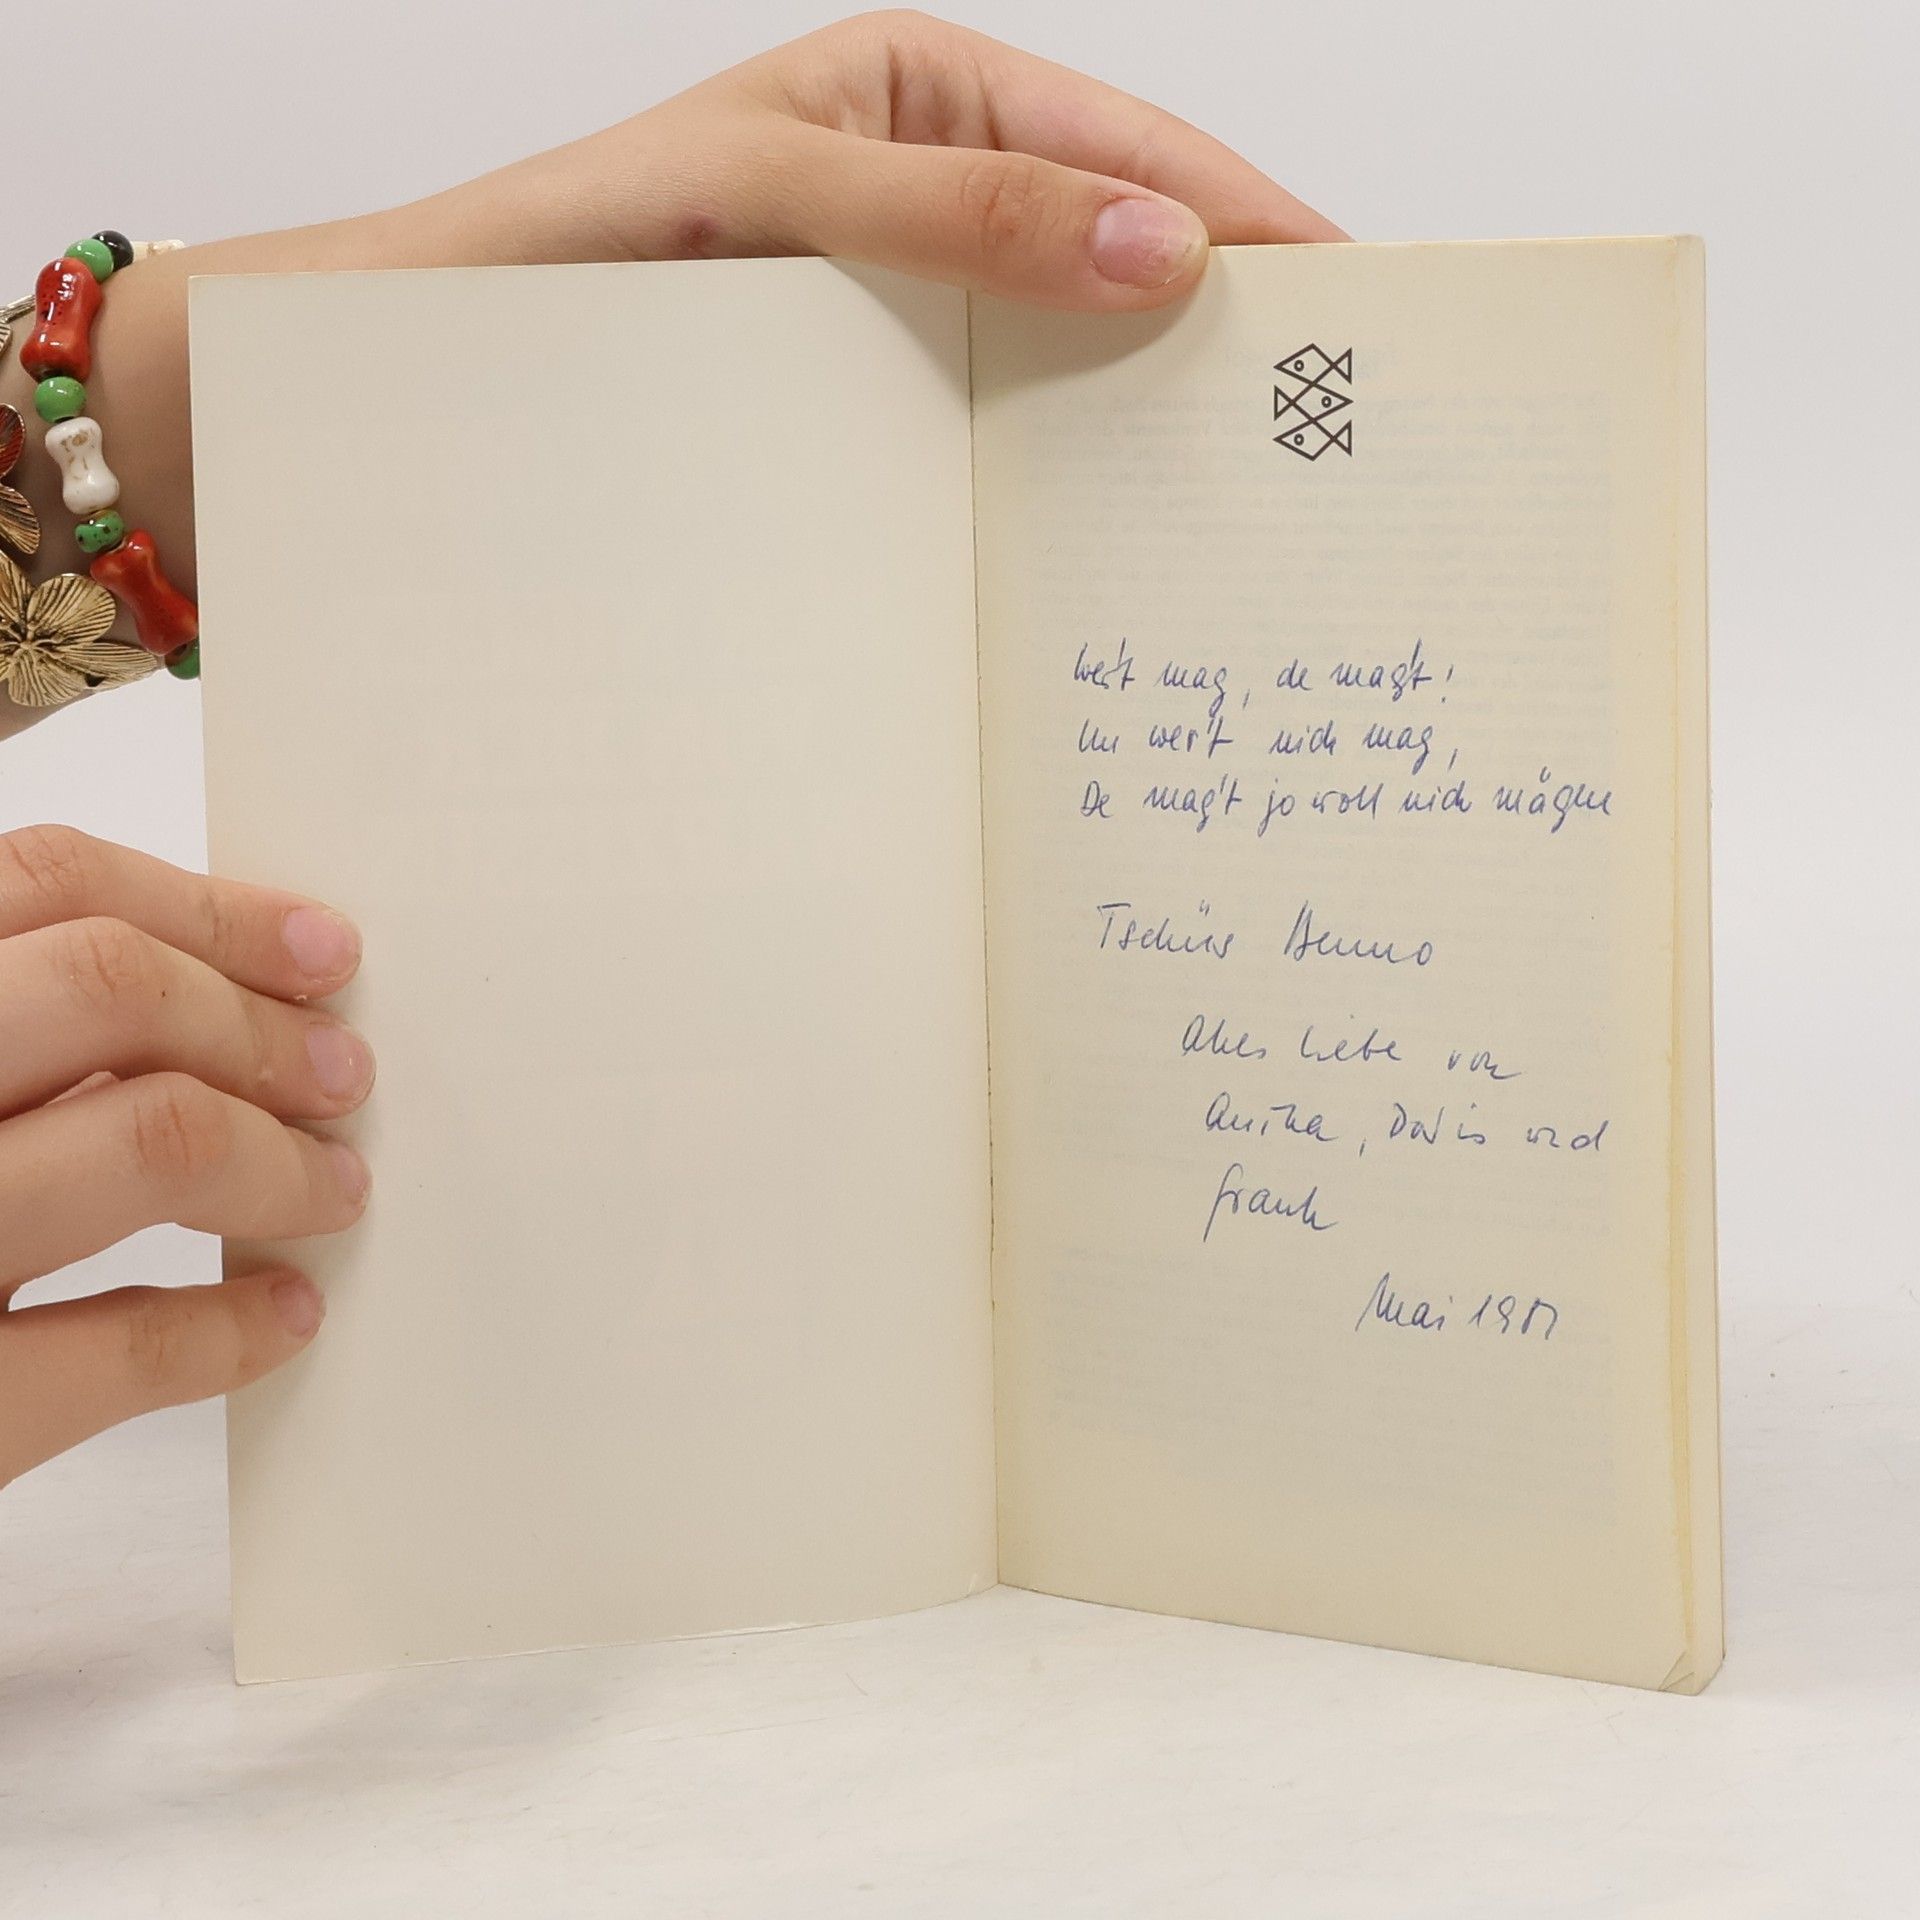 Wer't mag, de mag't!
Un wer't nich mag,
De mag't jo woll nich mägen
Tschüss Benno
Alles Liebe von
Anika, Doris und
Frank
Mai 1981